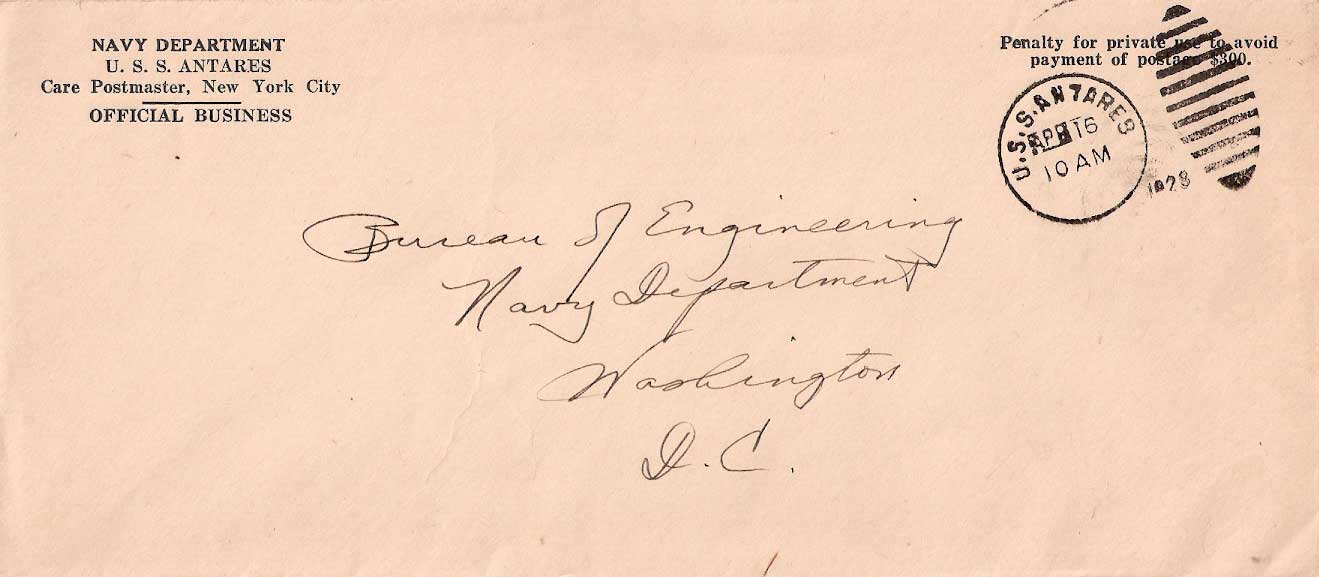 NAVY DEPARTMENT
U. S. S. ANTARES
Care Postmaster, New York City
OFFICIAL BUSINESS
Penalty for private use to avoid
payment of postage $300.
U.S.S. ANTARES
APR 16
10 AM
1928
Bureau of Engineering
Navy Department
Washington
D. C.